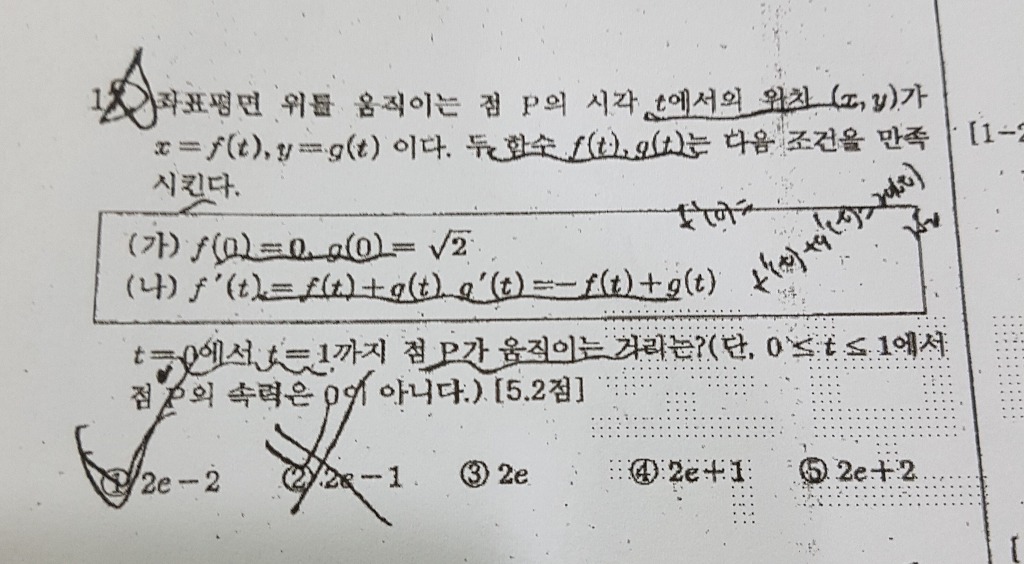 좌표평면 위를 움직이는 점 P의 시각 t에서의 위치 (x, y)가
x=f(t), y=g(t) 이다. 두 함수 f(t), g(t)는 다음 조건을 만족
[1-2
시킨다.
f'(0)=
(가) f(0)=0, g(0)= √2
(나) f'(t)=f(t)+g(t) g'(t)=-f(t)+g(t)
t=0에서 t=1까지 점 P가 움직이는 거리는?(단, 0≤t≤1에서
점 P의 속력은 0이 아니다.) [5.2점]
① 2e-2 ② 2e-1 ③ 2e ④ 2e+1 ⑤ 2e+2
[